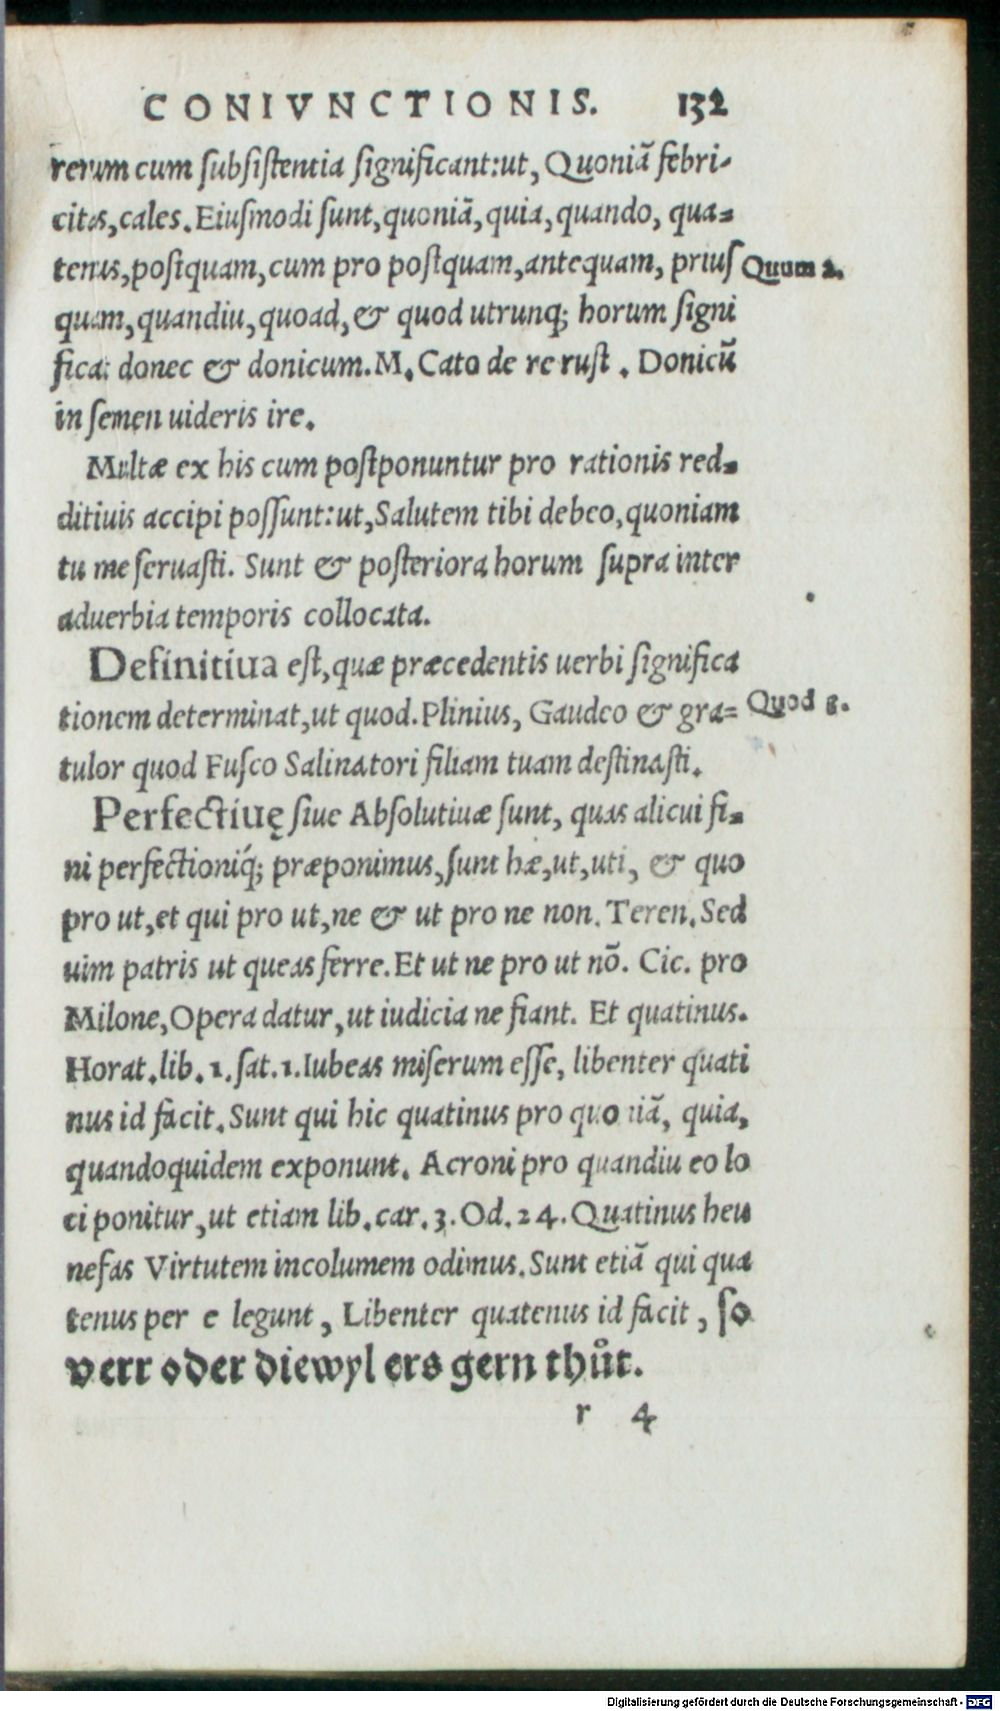 CONIVNCTIONIS. 132
rerum cum ſubſiſtentia ſignificant:ut, Quoniā febri-
citas,cales. Eiuſmodi ſunt,quoniā,quia,quando, qua=
tenus,poſtquam,cum pro poſtquam,antequam, priuſ
Quum 2.
quam,quandiu,quoad,& quod utrunq; horum ſigni
ficat donec & donicum.M. Cato de re ruſt . Donicū
in ſemen uideris ire.
Multæ ex his cum poſtponuntur pro rationis red=
ditiuis accipi poſſunt:ut,Salutem tibi debeo,quoniam
tu me ſeruaſti. Sunt & poſteriora horum ſupra inter
aduerbia temporis collocata.
Definitiua eſt,quæ præcedentis uerbi ſignifica
tionem determinat,ut quod.Plinius, Gaudeo & gra=
Quod 8.
tulor quod Fuſco Salinatori filiam tuam deſtinaſti.
Perfectiuę ſiue Abſolutiuæ ſunt, quas alicui fi=
ni perfectioniq́; præponimus,ſunt hæ,ut,uti, & quo
pro ut,et qui pro ut,ne & ut pro ne non. Teren. Sed
uim patris ut queas ferre.Et ut ne pro ut nō. Cic. pro
Milone,Opera datur,ut iudicia ne fiant. Et quatinus.
Horat.lib.1.ſat.1.Iubeas miſerum eſſe, libenter quati
nus id facit. Sunt qui hic quatinus pro quoniā, quia,
quandoquidem exponunt. Acroni pro quandiu eo lo
ci ponitur,ut etiam lib.car.3.Od.24.Quatinus heu
nefas Virtutem incolumem odimus.Sunt etiā qui qua
tenus per e legunt, Libenter quatenus id facit, ſo
verr oder diewyl ers gern thůt.
r 4
Digitalisierung gefördert durch die Deutsche Forschungsgemeinschaft - DFG